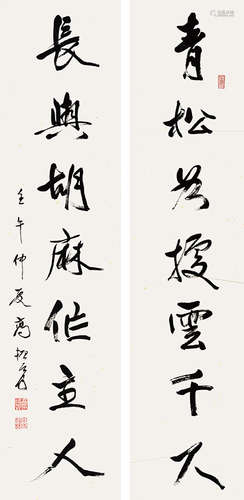 青松為援雲千尺
長與胡麻作主人
壬午仲夏